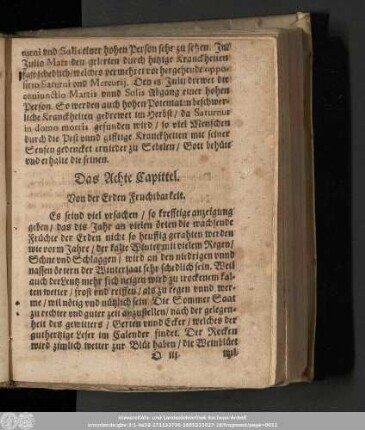 ment vnd Solis einer hohen Person sehr zu setzen. Im
Julio Mars den gelerten durch hitzige Kranckheiten
fast schedlich / welches vermehret vorhergehende oppo-
sitio Saturni vnd Mercurij. Den 12 Julij drewet die
coniunctio Martis vnnd Solis Abgang einer hohen
Person. So werden auch hohen Potentaten beschwer-
liche Kranckheiten gedrewet im Herbst / da Saturnus
in domo mortis gefunden wird / so viel Menschen
durch die Pest vnnd gifftige Kranckheiten mit seiner
Sensen gedencket ernieder zu Sebelen / Gott behüte
vnd erhalte die seinen.
Das Achte Capittel.
Von der Erden Fruchtbarkeit.
Es seind viel vrsachen / so krefftige anzeigung
geben / das dis Jahr an vielen örten die wachsende
Früchte der Erden nicht so heuffig gerahten werden
wie vorm Jahre / der kalte Winter mit vielem Regen /
Schne vnd Schlaggen / wird an den niedrigen vnnd
nassen örtern der Wintersaat sehr schedlich sein. Weil
auch der Lentz mehr sich neigen wird zu trockenem kal-
ten wetter / frost vnd reiffen / als zu regen vnnd wer-
me / wil nötig vnd nützlich sein Die Sommer Saat
zu rechter vnd guter zeit anzustellen / nach der gelegen-
heit des gewitters / Gerten vnnd Ecker / welches der
guthertzige Leser im Calender findet. Der Rocken
wird zimlich wetter zur Blüt haben / die Weinblüet
O iij